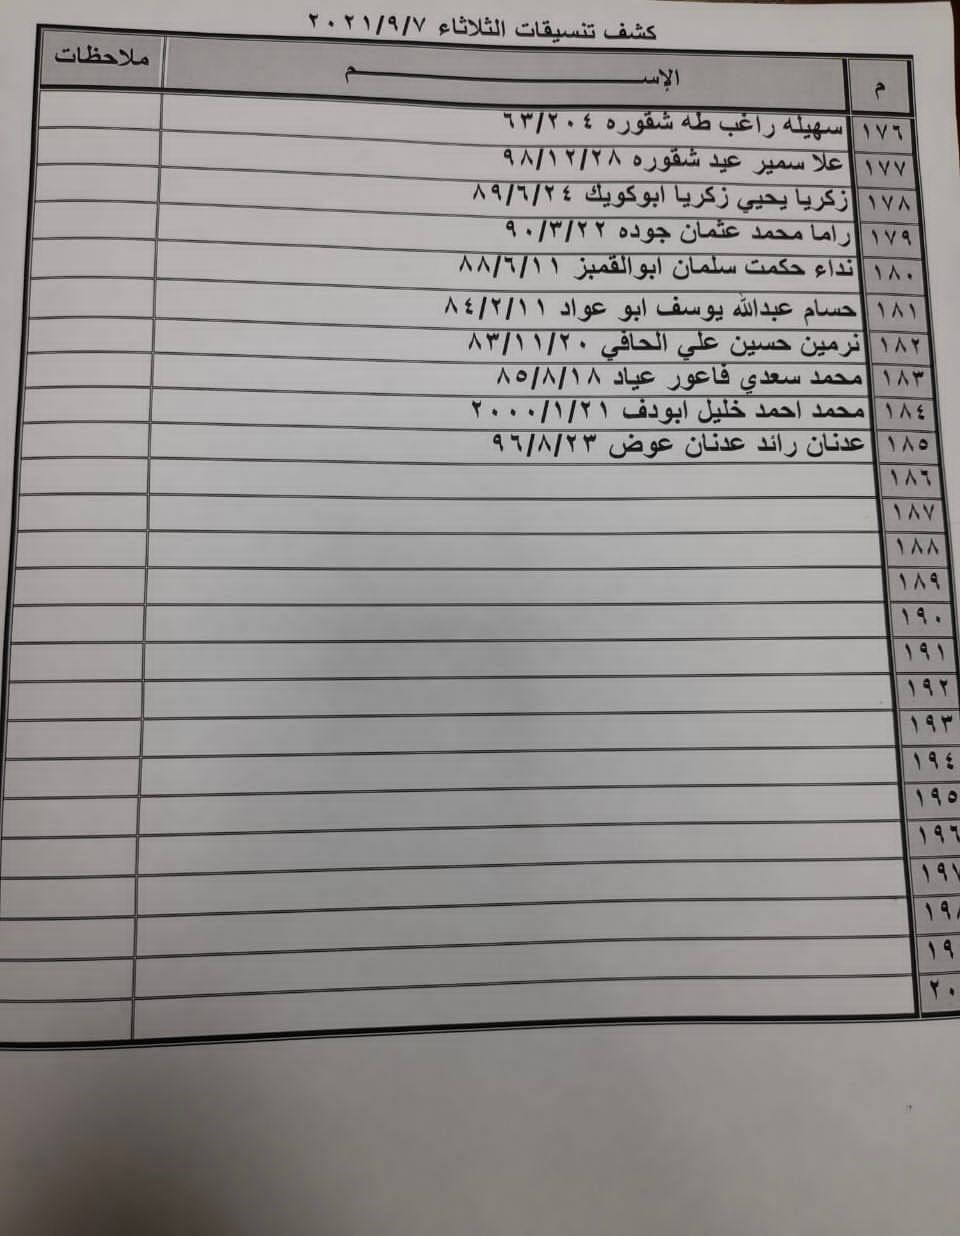 كشف تنسيقات الثلاثاء ٢٠٢١/٩/٧
م الإســـم ملاحظات
١٧٦ سهيله راغب طه شقوره ٦٣/٢٠٤
١٧٧ علا سمير عيد شقوره ٩٨/١٢/٢٨
١٧٨ زكريا يحيي زكريا ابوكويك ٨٩/٦/٢٤
١٧٩ راما محمد عثمان جوده ٩٠/٣/٢٢
١٨٠ نداء حكمت سلمان ابوالقمبز ٨٨/٦/١١
١٨١ حسام عبدالله يوسف ابو عواد ٨٤/٢/١١
١٨٢ نرمين حسين علي الحافي ٨٣/١١/٢٠
١٨٣ محمد سعدي فاعور عياد ٨٥/٨/١٨
١٨٤ محمد احمد خليل ابودف ٢٠٠٠/١/٢١
١٨٥ عدنان رائد عدنان عوض ٩٦/٨/٢٣
١٨٦
١٨٧
١٨٨
١٨٩
١٩٠
١٩١
١٩٢
١٩٣
١٩٤
١٩٥
١٩٦
١٩٧